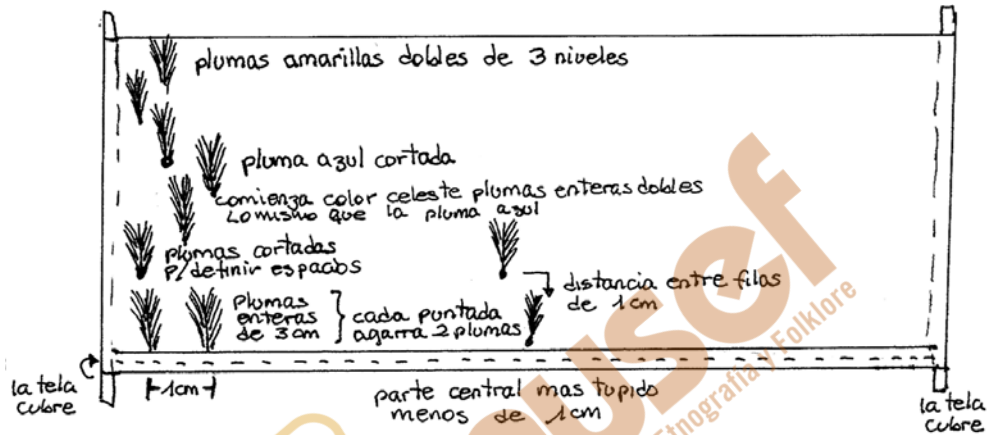 plumas amarillas dobles de 3 niveles
pluma azul cortada
comienza color celeste plumas enteras dobles
Lo mismo que la pluma azul
plumas cortadas
P/definir espacios
distancia entre filas
de 1cm
plumas
enteras
de 3cm
cada puntada
agarra 2 plumas
la tela
cubre
1cm
parte central mas tupido
menos de 1cm
la tela
cubre
musef
Etnografía y Folklore